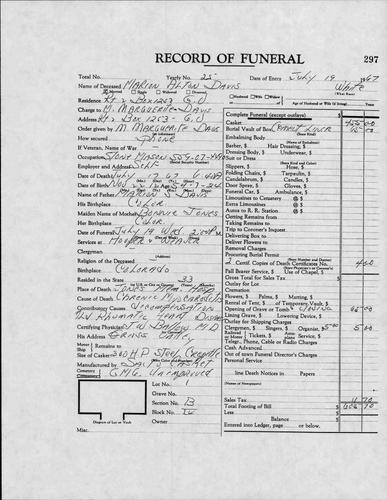 RECORD OF FUNERAL 297
Total No. Yearly No. 25 Date of Entry July 19 1967
Name of Deceased MARION ALTON DAVIS White
Married Single Widowed Divorced Husband Wife Widow (What Race)
Residence Rt 2 Box 1253 G.V. or Age of Husband or Wife (if living) Years
Charge to M. MARGUERITE DAVIS
Address Rt 2 Box 1253 - G.V.
Order given by M. MARGUERITE DAVIS
How secured PHONE
If Veteran, Name of War
Occupation STONE MASON
Employer and Address SELF
Date of Death July 17 67
Date of Birth Nov 22
Name of Father MARION S DAVIS
His Birthplace COLOR
Maiden Name of Mother BONNIE JONES
Her Birthplace COLOR.
Date of Funeral July 19 Wed. 2:00 P.M.
Services at HOOPER & WEAVER
Clergyman
Religion of the Deceased
Birthplace COLORADO
Resided in the State 33
(or U.S. or Can or County) (Years) (Months)
Place of Death JONES MEM. HOSP
Cause of Death CHRONIC MYOCARDITIS
Contributory Causes DECOMPENSATION
RHEUMATIC HEART DISEASE
Certifying Physician M.D
His Address GRASS VALLEY
Motor Remains to
Ship
Size of Casket
Manufactured by
Cemetery
Crematory
Diagram of Lot or Vault
Lot No. 1
Grave No.
Section No. B
Block No.
Owner
Misc.
Complete Funeral (except outlays) $
Casket 455 00
(State Kind)
Burial Vault of Box
(Name of Embalmer)
Embalming Body
Barber, $ Hair Dressing, $
Dressing Body, $ Underwear, $
Suit or Dress
(State Kind and Color)
Slippers, $ Hose, $
Folding Chairs, $ Tarpaulin, $
Candelabrum, $ Candles, $
Door Spray, $ Gloves, $
Funeral Car, $ Ambulance, $
Limousines to Cemetery @ $
Extra Limousines @ $
Autos to R. R. Station @ $
Getting Remains from
Taking Remains to
Trip to Coroner's Inquest
Delivering Box to
Deliver Flowers to
Removing Charges
Procuring Burial Permit
(State Number and Doctor)
2 Certif. Copies of Death Certificates No. 4 00
Pall Bearer Service, $ Use of Chapel, $
Gross Total for Sales Tax $
Outlay for Lot $
Cremation
Flowers, $ Palms, $ Matting, $
Rental of Tent, $ of Temporary Vault, $
Opening of Grave or Tomb
Lining Grave, $ Lowering Device, $
Outlay for Shipping Charges
Clergyman, $ Singers, $ Organist, $ 5 00
Tickets, $ Auto Service, $
Telgr., Phone, Cable or Radio Charges
Cash Advanced
Out of town Funeral Director's Charges
Personal Service
line Death Notices in Papers
(Names of Newspapers)
Sales Tax
Total Footing of Bill $
Less $
Balance $
Entered into Ledger, page or below.